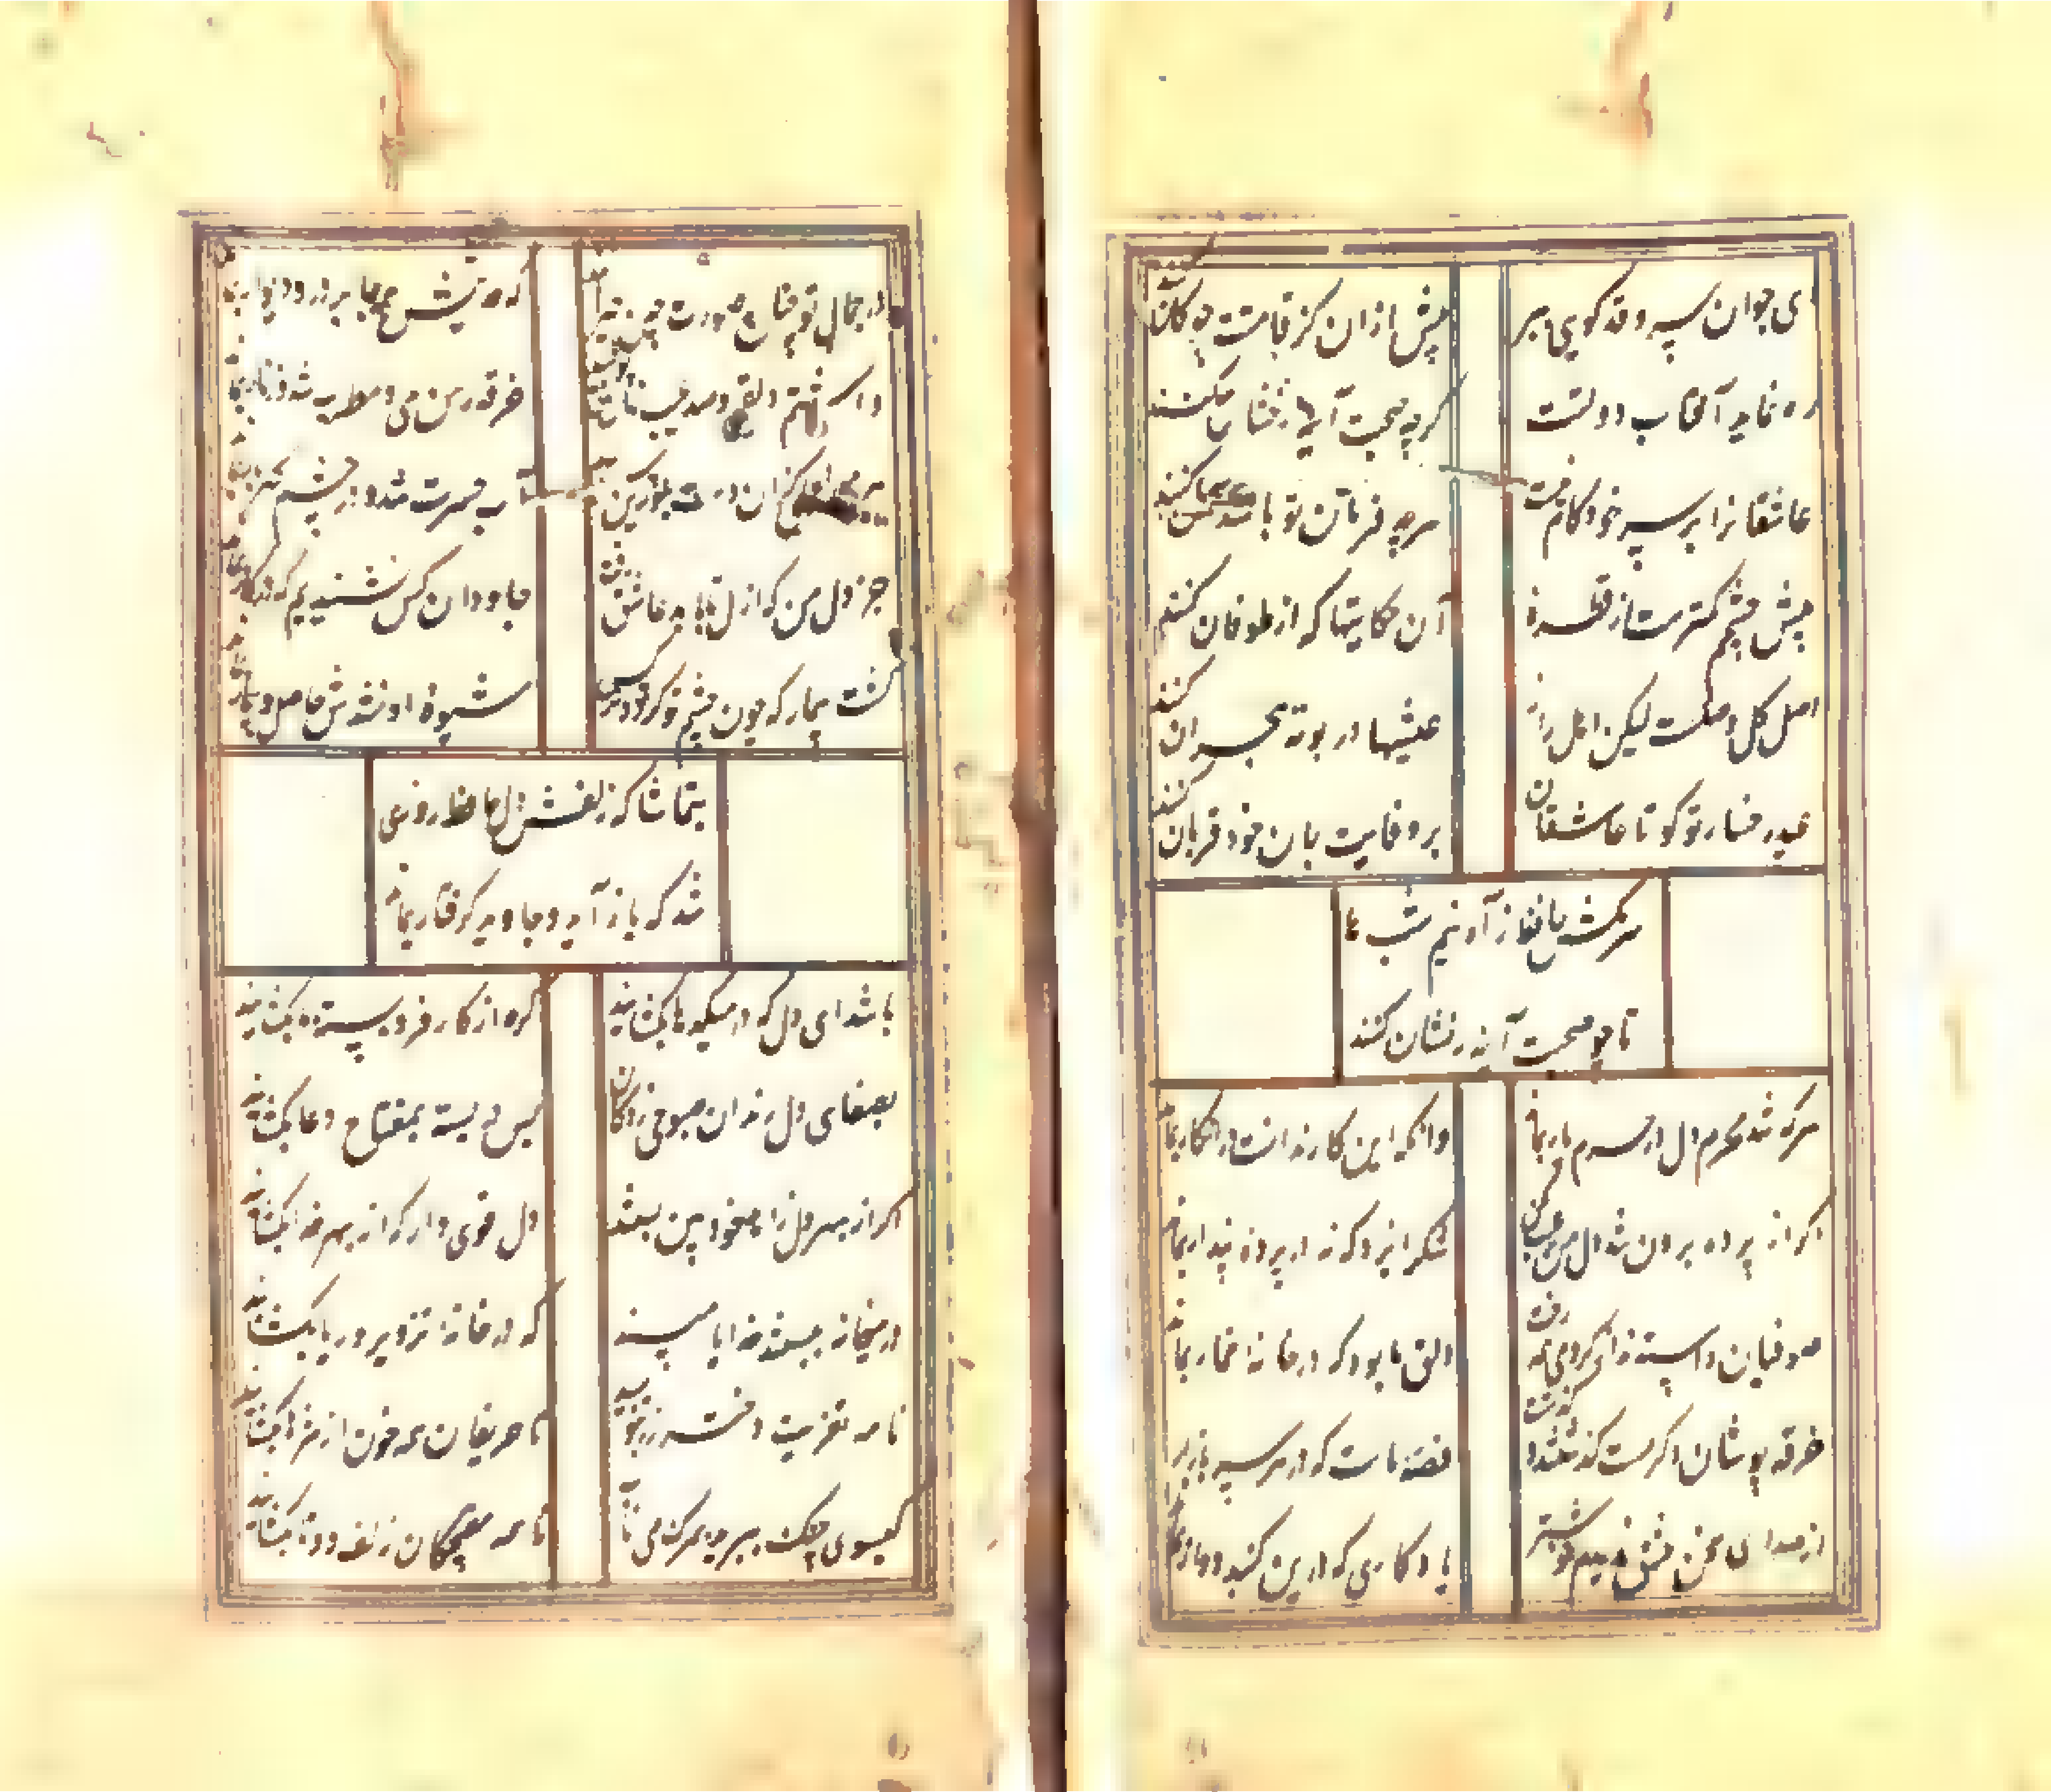 ای جوان سرو قد گویی ببر
پیش از آن کز قامتت چوگان کنند
ره نماید آفتاب دولتت
گر چو صبحت آینه رخشان کنند
عاشقانرا بر سر خود حکم نیست
هرچه فرمان تو باشد آن کنند
پیش چشمم کمترست از قطره
آن حکایتها که از طوفان کنند
عیشها در بوته هجران کنند
عید رخسار تو کو تا عاشقان
بر وفایت جان خود قربان کنند
سر مکش حافظ ز آه نیم شب
تا چو صبحت آینه رخشان کنند
هرکه شد محرم دل در حرم یار بماند
وانکه این کار ندانست در انکار بماند
اگر از پرده برون شد دل من عیب مکن
شکر ایزد که نه در پرده پندار بماند
صوفیان واستدند از گرو می همه رخت
دلق ما بود که در خانه خمار بماند
خرقه پوشان دگر مست گذشتند و گذشت
قصه ماست که در هر سر بازار بماند
از صدای سخن عشق ندیدم خوشتر
یادگاری که درین گنبد دوار بماند
در جمال تو چنان صورت چین حیران شد
که حدیثش همه جا بر در و دیوار بماند
داشتم دلقی و صد عیب نهان
خرقه رهن می و مطرب شد و زنار بماند
آب حسرت شد و در چشم گهربار بماند
جز دل من کز ازل تا به ابد عاشق رفت
جاودان کس نشنیدیم که در کار بماند
گشت بیمار که چون چشم تو گردد نرگس
شیوه او نشدش حاصل و بیمار بماند
بتماشاگه زلفش دل حافظ روزی
شد که باز آید و جاوید گرفتار بماند
باشد ای دل که در میکدها بگشایند
گره از کار فرو بسته ما بگشایند
بصفای دل رندان صبوحی زدگان
بس در بسته بمفتاح دعا بگشایند
اگر از بهر دل زاهد خودبین بستند
دل قوی دار که از بهر خدا بگشایند
در میخانه ببستند خدایا مپسند
که در خانه تزویر و ریا بگشایند
نامه تعزیت دختر رز بنویسید
تا حریفان همه خون از مژها بگشایند
گیسوی چنگ ببرید بمرگ می ناب
تا همه مغبچگان زلف دوتا بگشایند